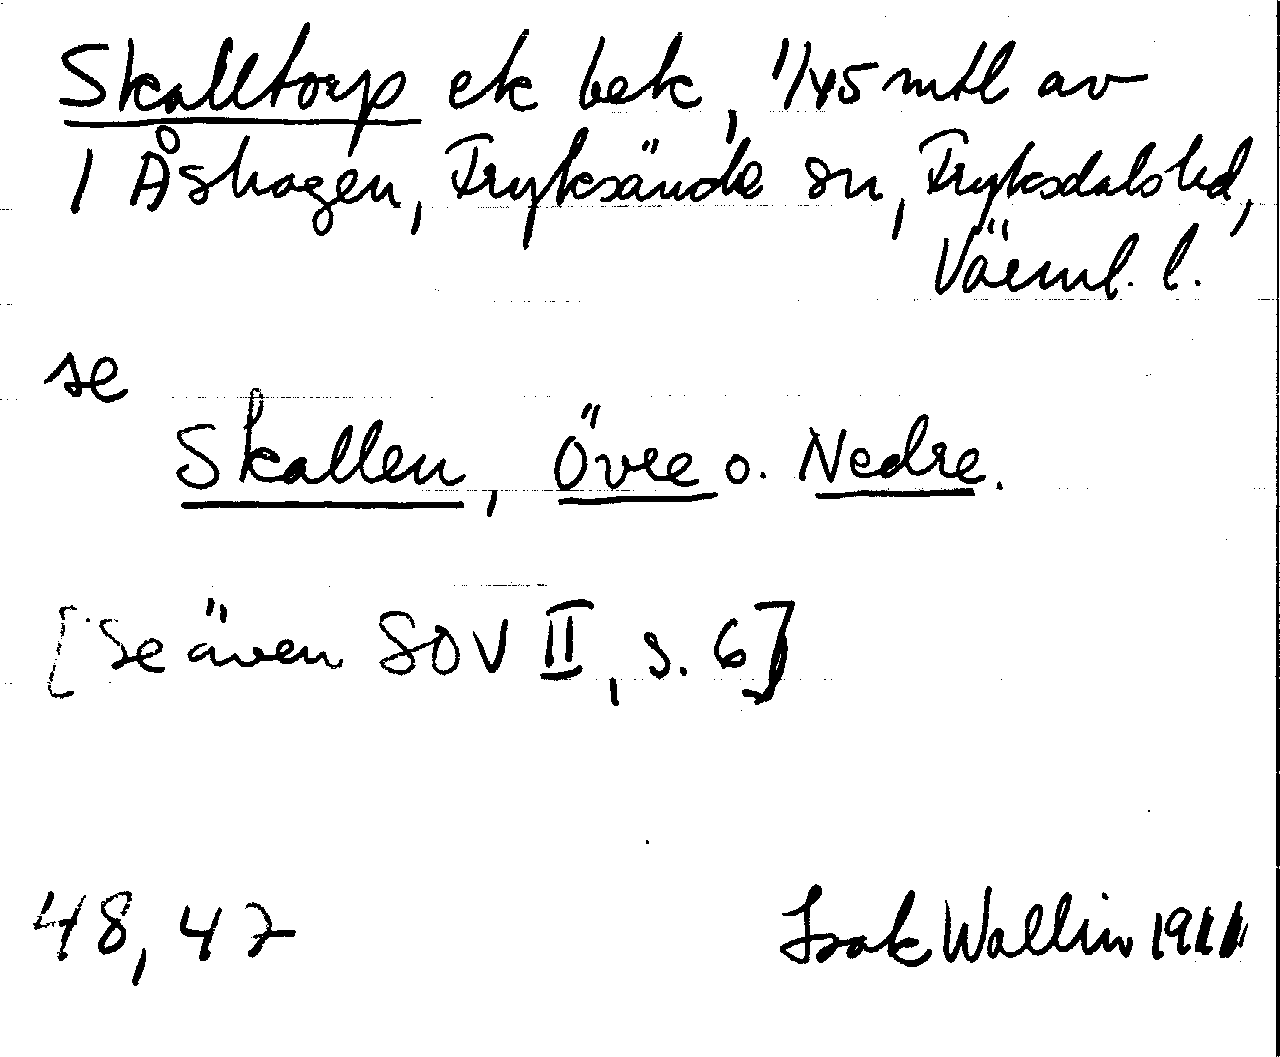 Skalltorp ek bek, 1/45 mtl av
1 Åshagen, Fryksände sn, Fryksdals hd,
Värml. l.
se
Skallen, Övre o. Nedre.
[Se även SOV II, s. 6]
48, 47
Isak Wallin 1911